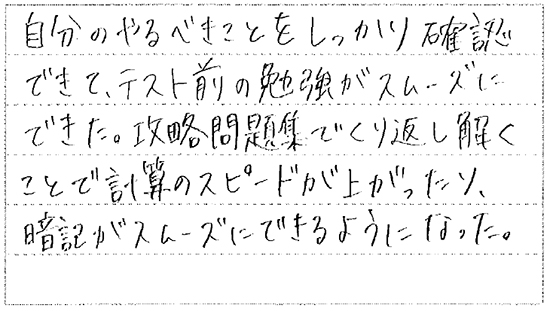 自分のやるべきことをしっかり確認
できて、テスト前の勉強がスムーズに
できた。攻略問題集でくり返し解く
ことで計算のスピードが上がったり、
暗記がスムーズにできるようになった。